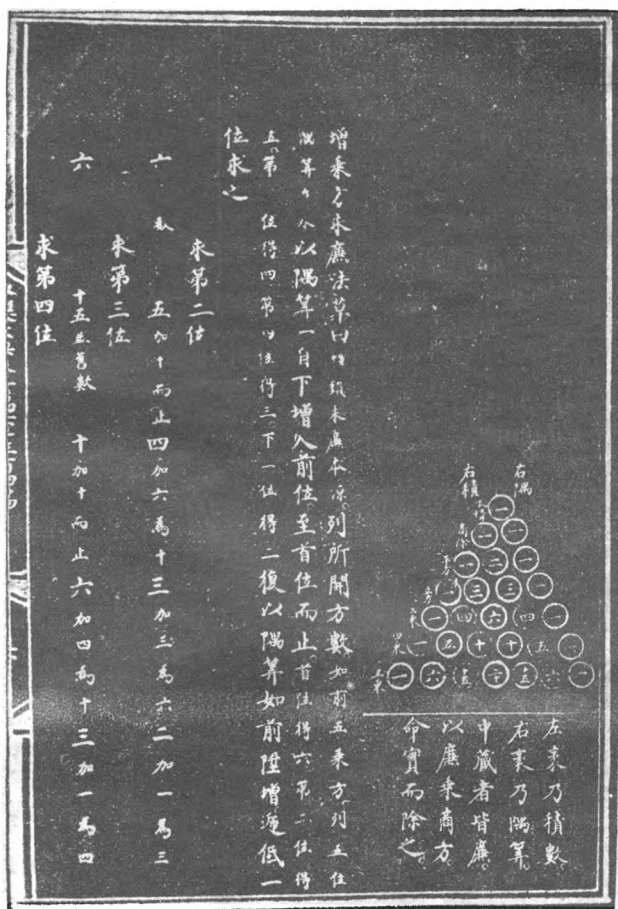 右隅
右積
一
一 一
一 二 一
一 三 三 一
一 四 六 四 一
一 五 十 十 五 一
一 六 十五 二十 十五 六 一
左袤乃積數。
右袤乃隅算。
中藏者皆廉。
以廉乘商方。
命實而除之。
增乘方求廉法草曰 求廉本源。列所開方數如前五乘方列五位
隅算 以隅算一自下增入前位。至首位而止。首位得六第二位得
五。第 位得四。第 位得三。下一位得二復以隅算如前陞增遞低一
位求之
求第二位
五加十而止四加六為十三加三為六二加一為三
求第三位
六 十五並舊數 十加十而止六加四為十三加一為四
求第四位